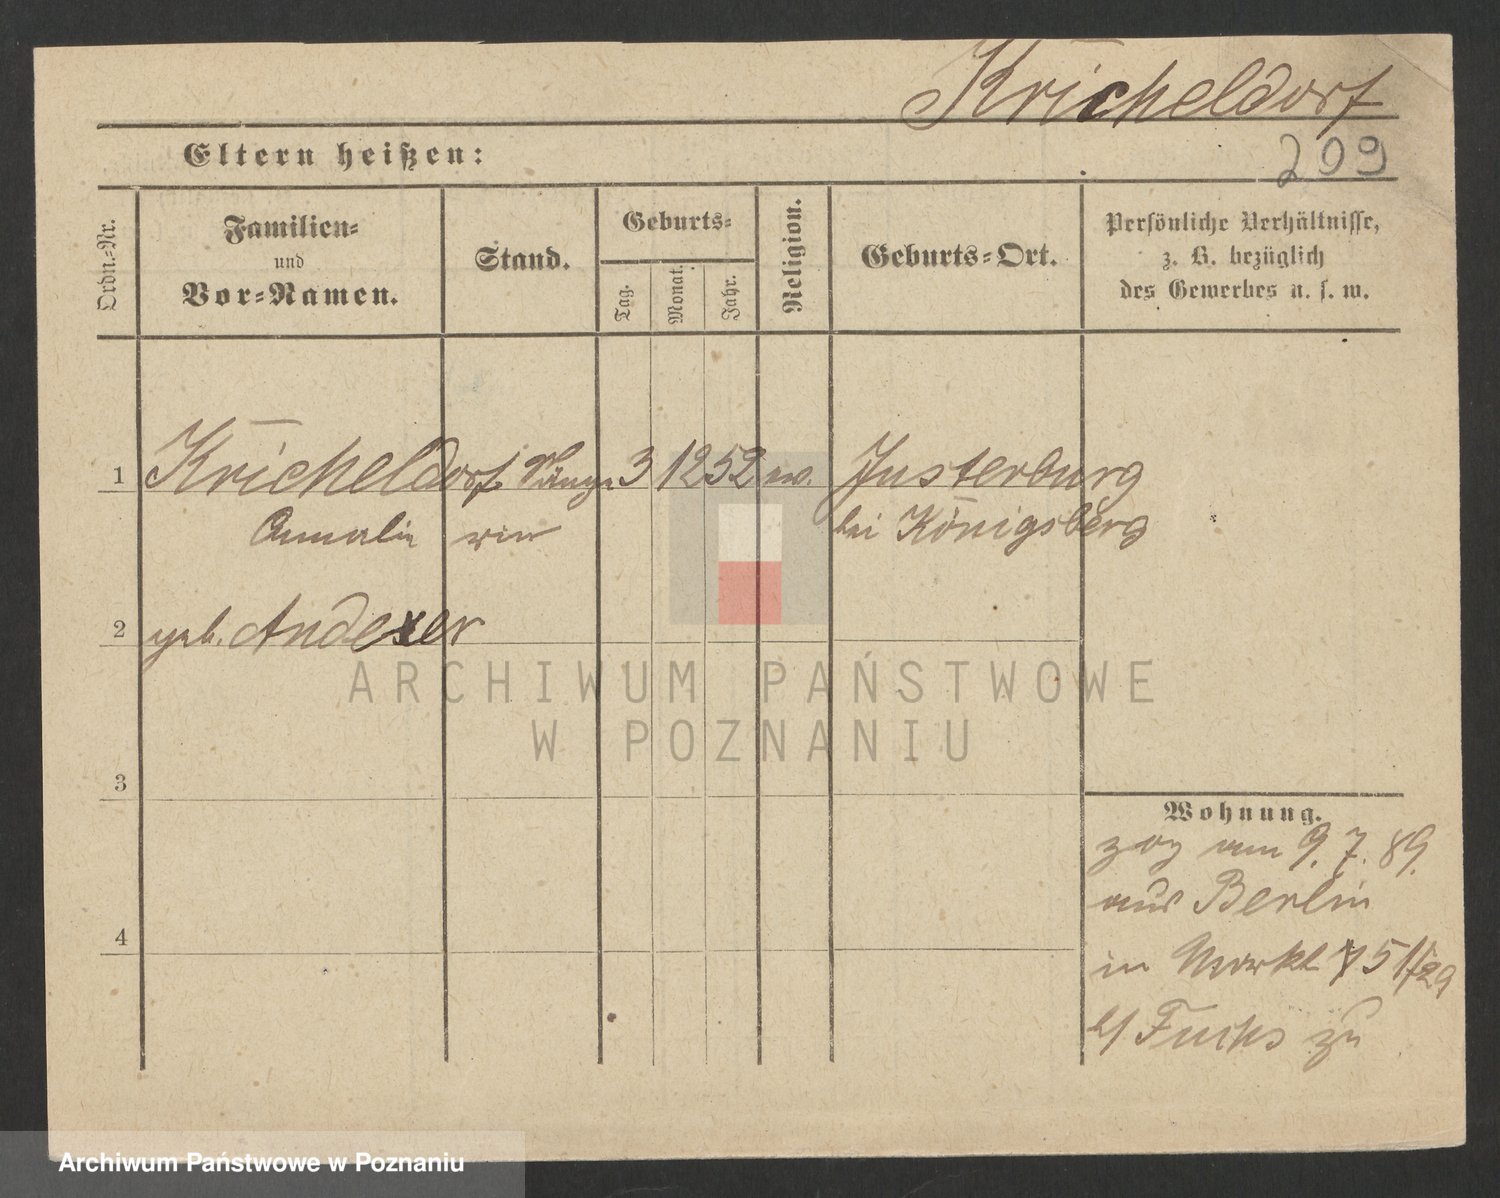 Kricheldorf
209
Eltern heißen:
Ordn.-Nr.
Familien-
und
Vor-Namen.
Stand.
Geburts-
Tag.
Monat.
Jahr.
Religion.
Geburts-Ort.
Persönliche Verhältnisse,
z. B. bezüglich
des Gewerbes u. s. w.
1 Kricheldorf Sänge 3 12 52 ev. Insterburg
Annalie rin bei Königsberg
2 geb. Andexer
3
4
Wohnung.
zog am 9. 7. 89.
aus Berlin
in Markt 75
b/ Fuchs zu
ARCHIWUM PAŃSTWOWE
W POZNANIU
Archiwum Państwowe w Poznaniu